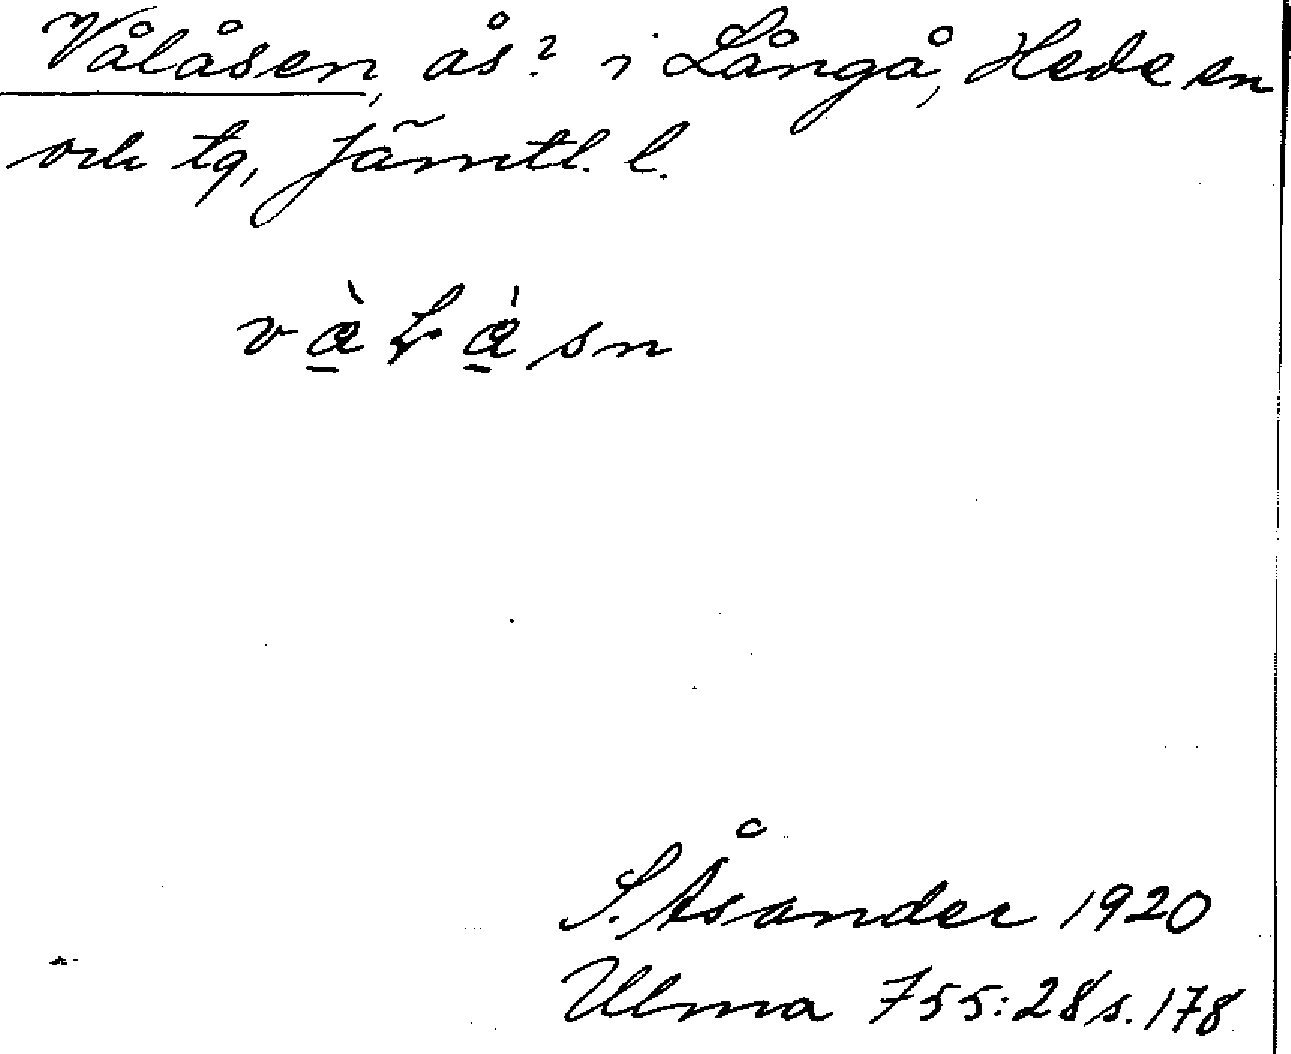 Vålåsen, ås? i Långå, Hede sn
och tg, Jämtl. l.
S. Åsander 1920
Ulma 755:28 s. 178